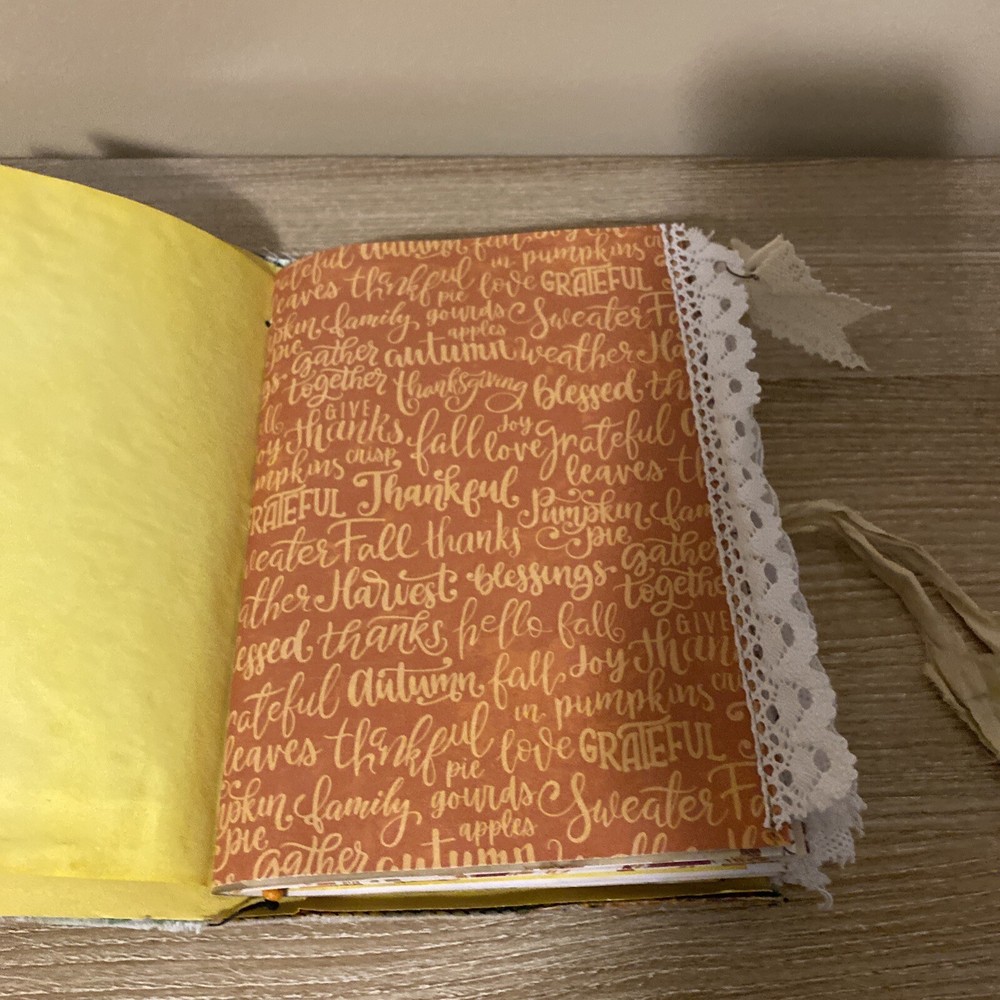 autumn fall
in pumpkins
leaves thankful pie love GRATEFUL
family gourds Sweater
apples
pie
gather autumn weather
together thanksgiving blessed
GIVE
thanks fall Joy love grateful
crisp
leaves
GRATEFUL Thankful
Pumpkin
pie
Sweater Fall thanks
gather
Harvest blessings
together
blessed thanks hello fall
GIVE
Joy thanks
grateful Autumn fall
in pumpkins
leaves thankful pie love GRATEFUL
pumpkin family gourds Sweater
apples
pie
gather autumn